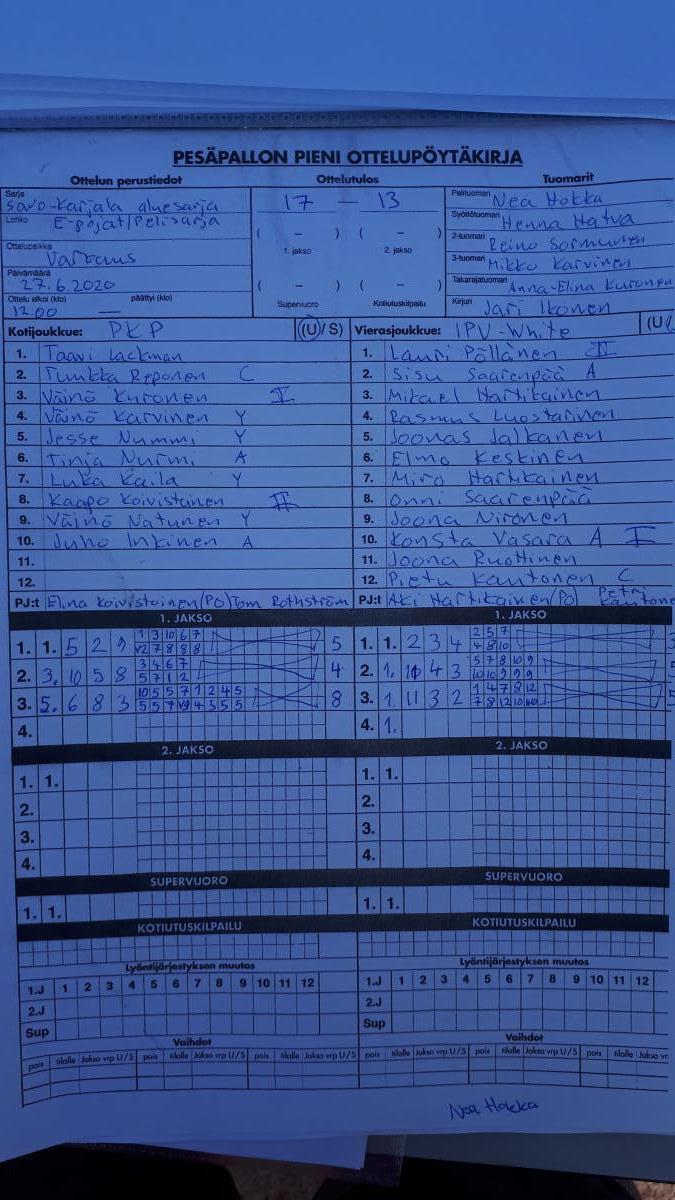 PESÄPALLON PIENI OTTELUPÖYTÄKIRJA
Ottelun perustiedot
Sarja
Savo-Karjala aluesarja
Lohko
E-pojat/Pelisarja
Ottelupaikka
Varkaus
Päivämäärä
27.6.2020
Ottelu alkoi (klo) päättyi (klo)
12.00 —
Ottelutulos
17 — 13
( – ) ( – )
1. jakso 2. jakso
( – ) ( – )
Supervuoro Kotiutuskilpailu
Tuomarit
Pelituomari Nea Hokka
Syöttötuomari Henna Hatva
2-tuomari Reino Sormunen
3-tuomari Mikko Karvinen
Takarajatuomari Anna-Elina Kuronen
Kirjuri Jari Ikonen
Kotijoukkue: PKP (U/S)
1. Taavi Lackman
2. Tuukka Reponen C
3. Väinö Kuronen I
4. Väinö Karvinen Y
5. Jesse Nummi Y
6. Tinja Nurmi A
7. Luka Kaila Y
8. Kaapo Koivistoinen II
9. Väinö Natunen Y
10. Juho Inkinen A
11.
12.
PJ:t Elina Koivistoinen (PO) Tom Rothström
Vierasjoukkue: IPV-White (U/
1. Lauri Pöllänen II
2. Sisu Saarenpää A
3. Mikael Hartikainen
4. Rasmus Luostarinen
5. Joonas Jalkanen
6. Elmo Keskinen
7. Miro Hartikainen
8. Onni Saarenpää
9. Joona Nironen
10. Konsta Vasara A I
11. Joona Ruottinen
12. Pietu Kantonen C
PJ:t Aki Hartikainen (PO) Petri Kantone
1. JAKSO
1. 1. 5 2 9 1 3 10 6 7 5
2. 3. 10 5 8 3 4 6 7 4
5 7 1 2
3. 5. 6 8 3 10 5 5 7 1 2 4 5 8
4.
1. JAKSO
1. 1. 2 3 4 2 5 7
4 8 10
2. 1. 10 4 3 5 7 8 10 9
10 10 9 9 9
3. 1. 11 3 2 1 4 7 8 12
4. 1.
2. JAKSO
1. 1.
2.
3.
4.
2. JAKSO
1. 1.
2.
3.
4.
SUPERVUORO
1. 1.
SUPERVUORO
1. 1.
KOTIUTUSKILPAILU
KOTIUTUSKILPAILU
Lyöntijärjestyksen muutos
1.J 1 2 3 4 5 6 7 8 9 10 11 12
2.J
Sup
Lyöntijärjestyksen muutos
1.J 1 2 3 4 5 6 7 8 9 10 11 12
2.J
Sup
Vaihdot
pois tilalle Jakso vrp U/S pois tilalle Jakso vrp U/S pois tilalle Jakso vrp U/S
Vaihdot
pois tilalle Jakso vrp U/S pois tilalle Jakso vrp U/S pois tilalle Jakso vr
Nea Hokka